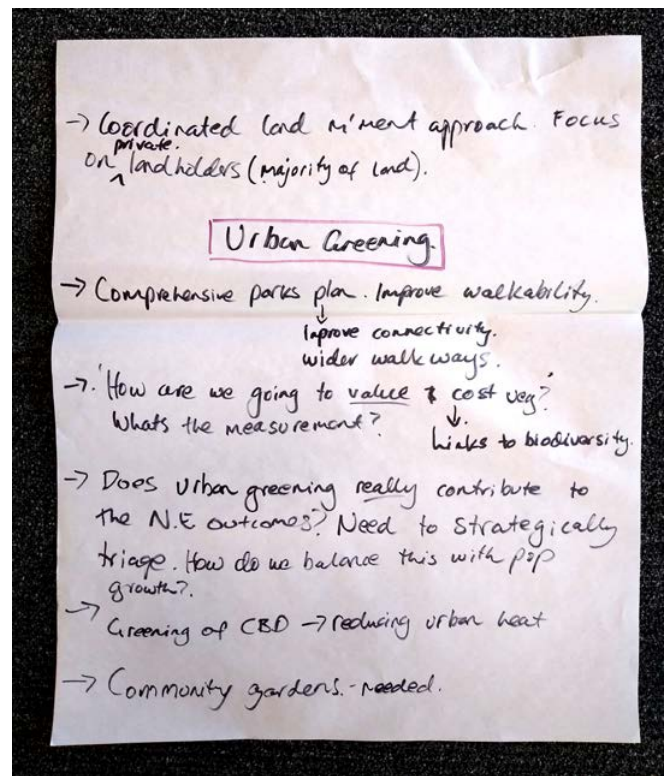 → Coordinated land m'ment approach. Focus
on private landholders (majority of land).
Urban Greening.
→ Comprehensive parks plan. Improve walkability.
↓
Improve connectivity.
wider walkways.
→ 'How are we going to value & cost veg?'
Whats the measurement?
↓
Links to biodiversity.
→ Does urban greening really contribute to
the N.E outcomes? Need to strategically
triage. How do we balance this with pop
growth?.
→ Greening of CBD → reducing urban heat
→ Community gardens. - needed.